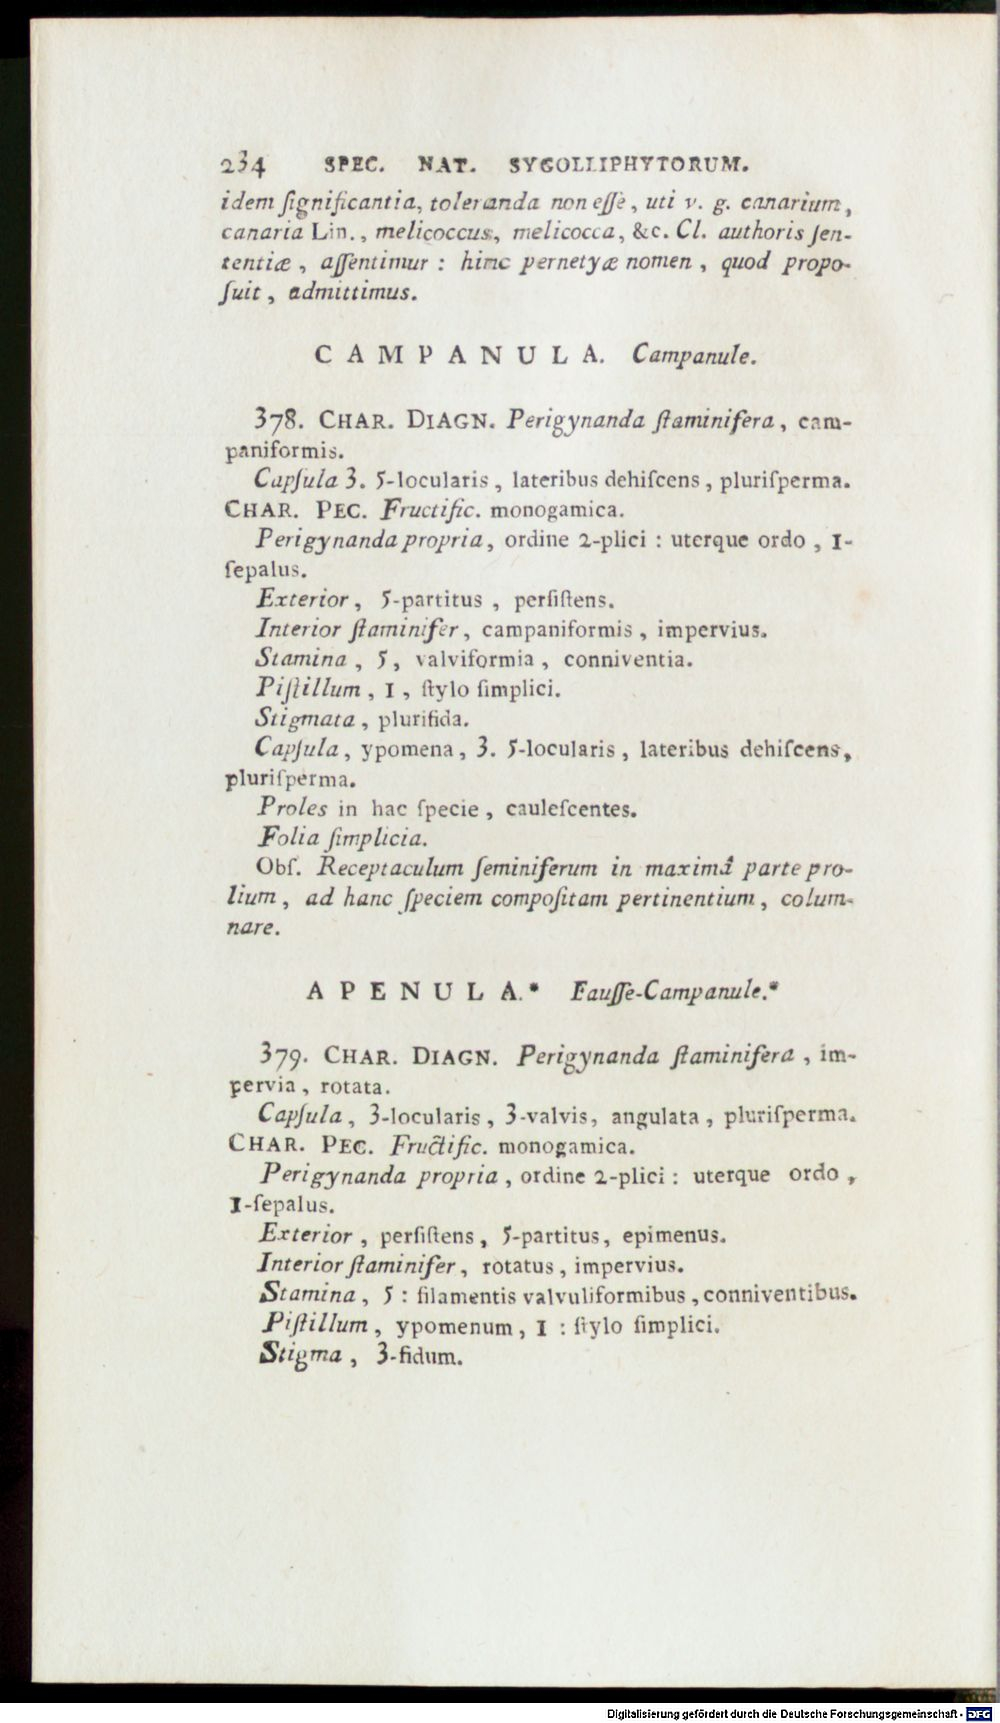 234 SPEC. NAT. SYGOLLIPHYTORUM.
idem ſignificantia, toleranda non eſſe, uti v. g. canarium,
canaria Lin., melicoccus, melicocca, &c. Cl. authoris ſen-
tentiæ, aſſentimur : hinc pernetyæ nomen, quod propo-
ſuit, admittimus.
CAMPANULA. Campanule.
378. CHAR. DIAGN. Perigynanda ſtaminifera, cam-
paniformis.
Capſula 3. 5-locularis, lateribus dehiſcens, pluriſperma.
CHAR. PEC. Fructific. monogamica.
Perigynanda propria, ordine 2-plici : uterque ordo, 1-
ſepalus.
Exterior, 5-partitus, perſiſtens.
Interior ſtaminifer, campaniformis, impervius.
Stamina, 5, valviformia, conniventia.
Piſtillum, 1, ſtylo ſimplici.
Stigmata, plurifida.
Capſula, ypomena, 3. 5-locularis, lateribus dehiſcens,
pluriſperma.
Proles in hac ſpecie, cauleſcentes.
Folia ſimplicia.
Obſ. Receptaculum ſeminiferum in maximâ parte pro-
lium, ad hanc ſpeciem compoſitam pertinentium, colum-
nare.
APENULA.* Fauſſe-Campanule.*
379. CHAR. DIAGN. Perigynanda ſtaminifera, im-
pervia, rotata.
Capſula, 3-locularis, 3-valvis, angulata, pluriſperma.
CHAR. PEC. Fructific. monogamica.
Perigynanda propria, ordine 2-plici : uterque ordo,
1-ſepalus.
Exterior, perſiſtens, 5-partitus, epimenus.
Interior ſtaminifer, rotatus, impervius.
Stamina, 5 : filamentis valvuliformibus, conniventibus.
Piſtillum, ypomenum, 1 : ſtylo ſimplici.
Stigma, 3-fidum.
Digitalisierung gefördert durch die Deutsche Forschungsgemeinschaft - DFG